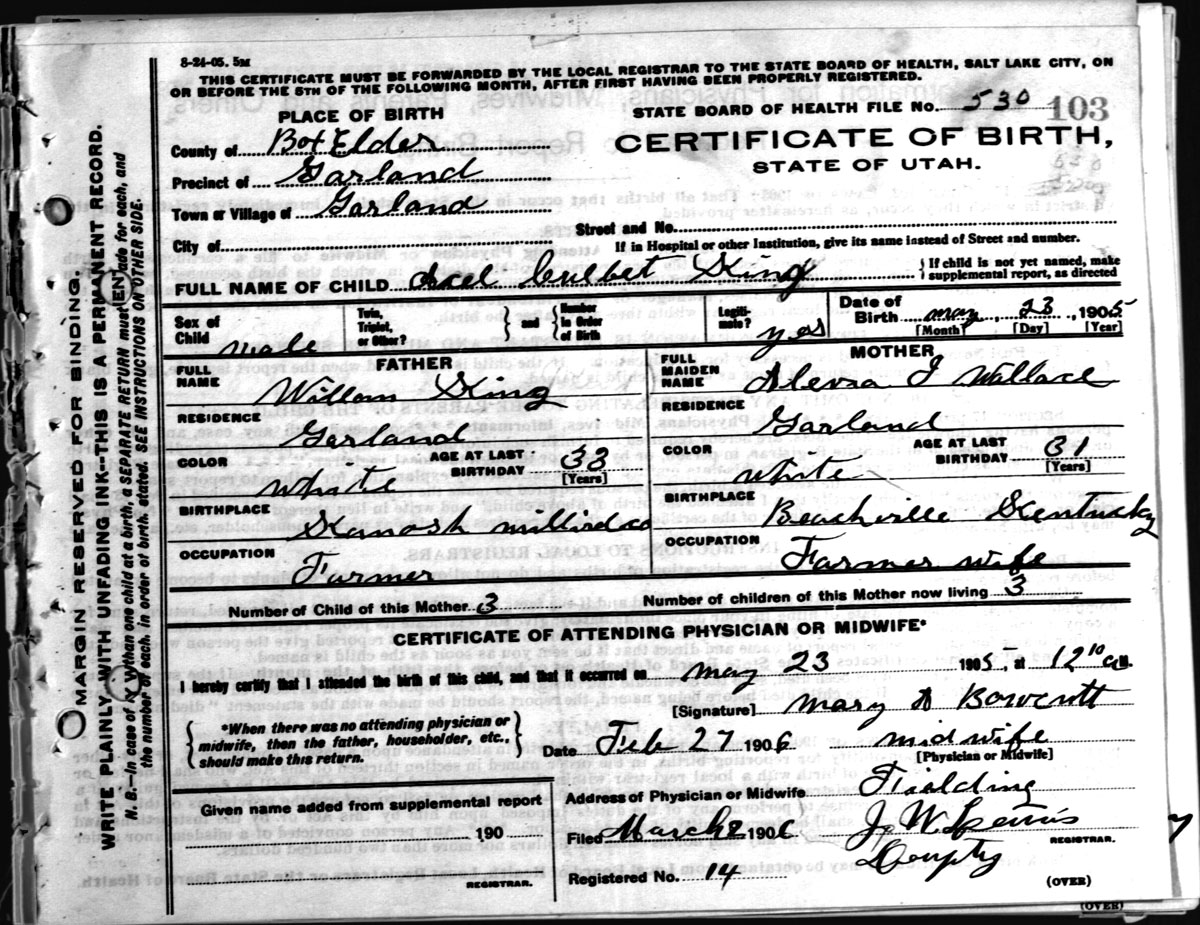 8-24-05. 5M
THIS CERTIFICATE MUST BE FORWARDED BY THE LOCAL REGISTRAR TO THE STATE BOARD OF HEALTH, SALT LAKE CITY, ON
OR BEFORE THE 5TH OF THE FOLLOWING MONTH, AFTER FIRST HAVING BEEN PROPERLY REGISTERED.
PLACE OF BIRTH
STATE BOARD OF HEALTH FILE No. 530 103
County of Box Elder
CERTIFICATE OF BIRTH,
STATE OF UTAH.
Precinct of Garland
Town or Village of Garland
Street and No.
City of
If in Hospital or other Institution, give its name instead of Street and number.
FULL NAME OF CHILD King
{If child is not yet named, make
supplemental report, as directed
Sex of Child male
Twin, Triplet, or Other?
{ and } Number in Order of Birth
Legitimate? yes
Date of Birth may 23, 1905
[Month] [Day] [Year]
FATHER
FULL NAME Willam King
RESIDENCE Garland
COLOR White
AGE AT LAST BIRTHDAY 33 [Years]
BIRTHPLACE Kanosh millird co
OCCUPATION Farmer
MOTHER
FULL MAIDEN NAME Wallace
RESIDENCE Garland
COLOR White
AGE AT LAST BIRTHDAY 31 [Years]
BIRTHPLACE Kentucky
OCCUPATION Farmer wife
Number of Child of this Mother 3
Number of children of this Mother now living 3
CERTIFICATE OF ATTENDING PHYSICIAN OR MIDWIFE*
I hereby certify that I attended the birth of this child, and that it occurred on may 23 1905, at 12 10 a.M.
[Signature] Mary
{*When there was no attending physician or
midwife, then the father, householder, etc.,
should make this return.}
Date Feb 27 1906
midwife
[Physician or Midwife]
Given name added from supplemental report
190
REGISTRAR.
Address of Physician or Midwife Fielding
Filed March 2 1906 J. W.
REGISTRAR.
Depty
Registered No. 14
(OVER)
(OVER)
MARGIN RESERVED FOR BINDING.
WRITE PLAINLY WITH UNFADING INK--THIS IS A PERMANENT RECORD.
the number of each, in order of birth, stated. SEE INSTRUCTIONS ON OTHER SIDE.